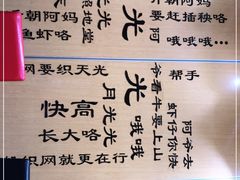 朝阿妈
鱼虾咯
地堂
光
阿妈
要赶插秧咯
阿
哦哦哦…
网要织天光
光
帮手
快高
长大咯
月光光
哦哦
爷看牛要上山
虾仔你快
阿爷去
织网就更在行